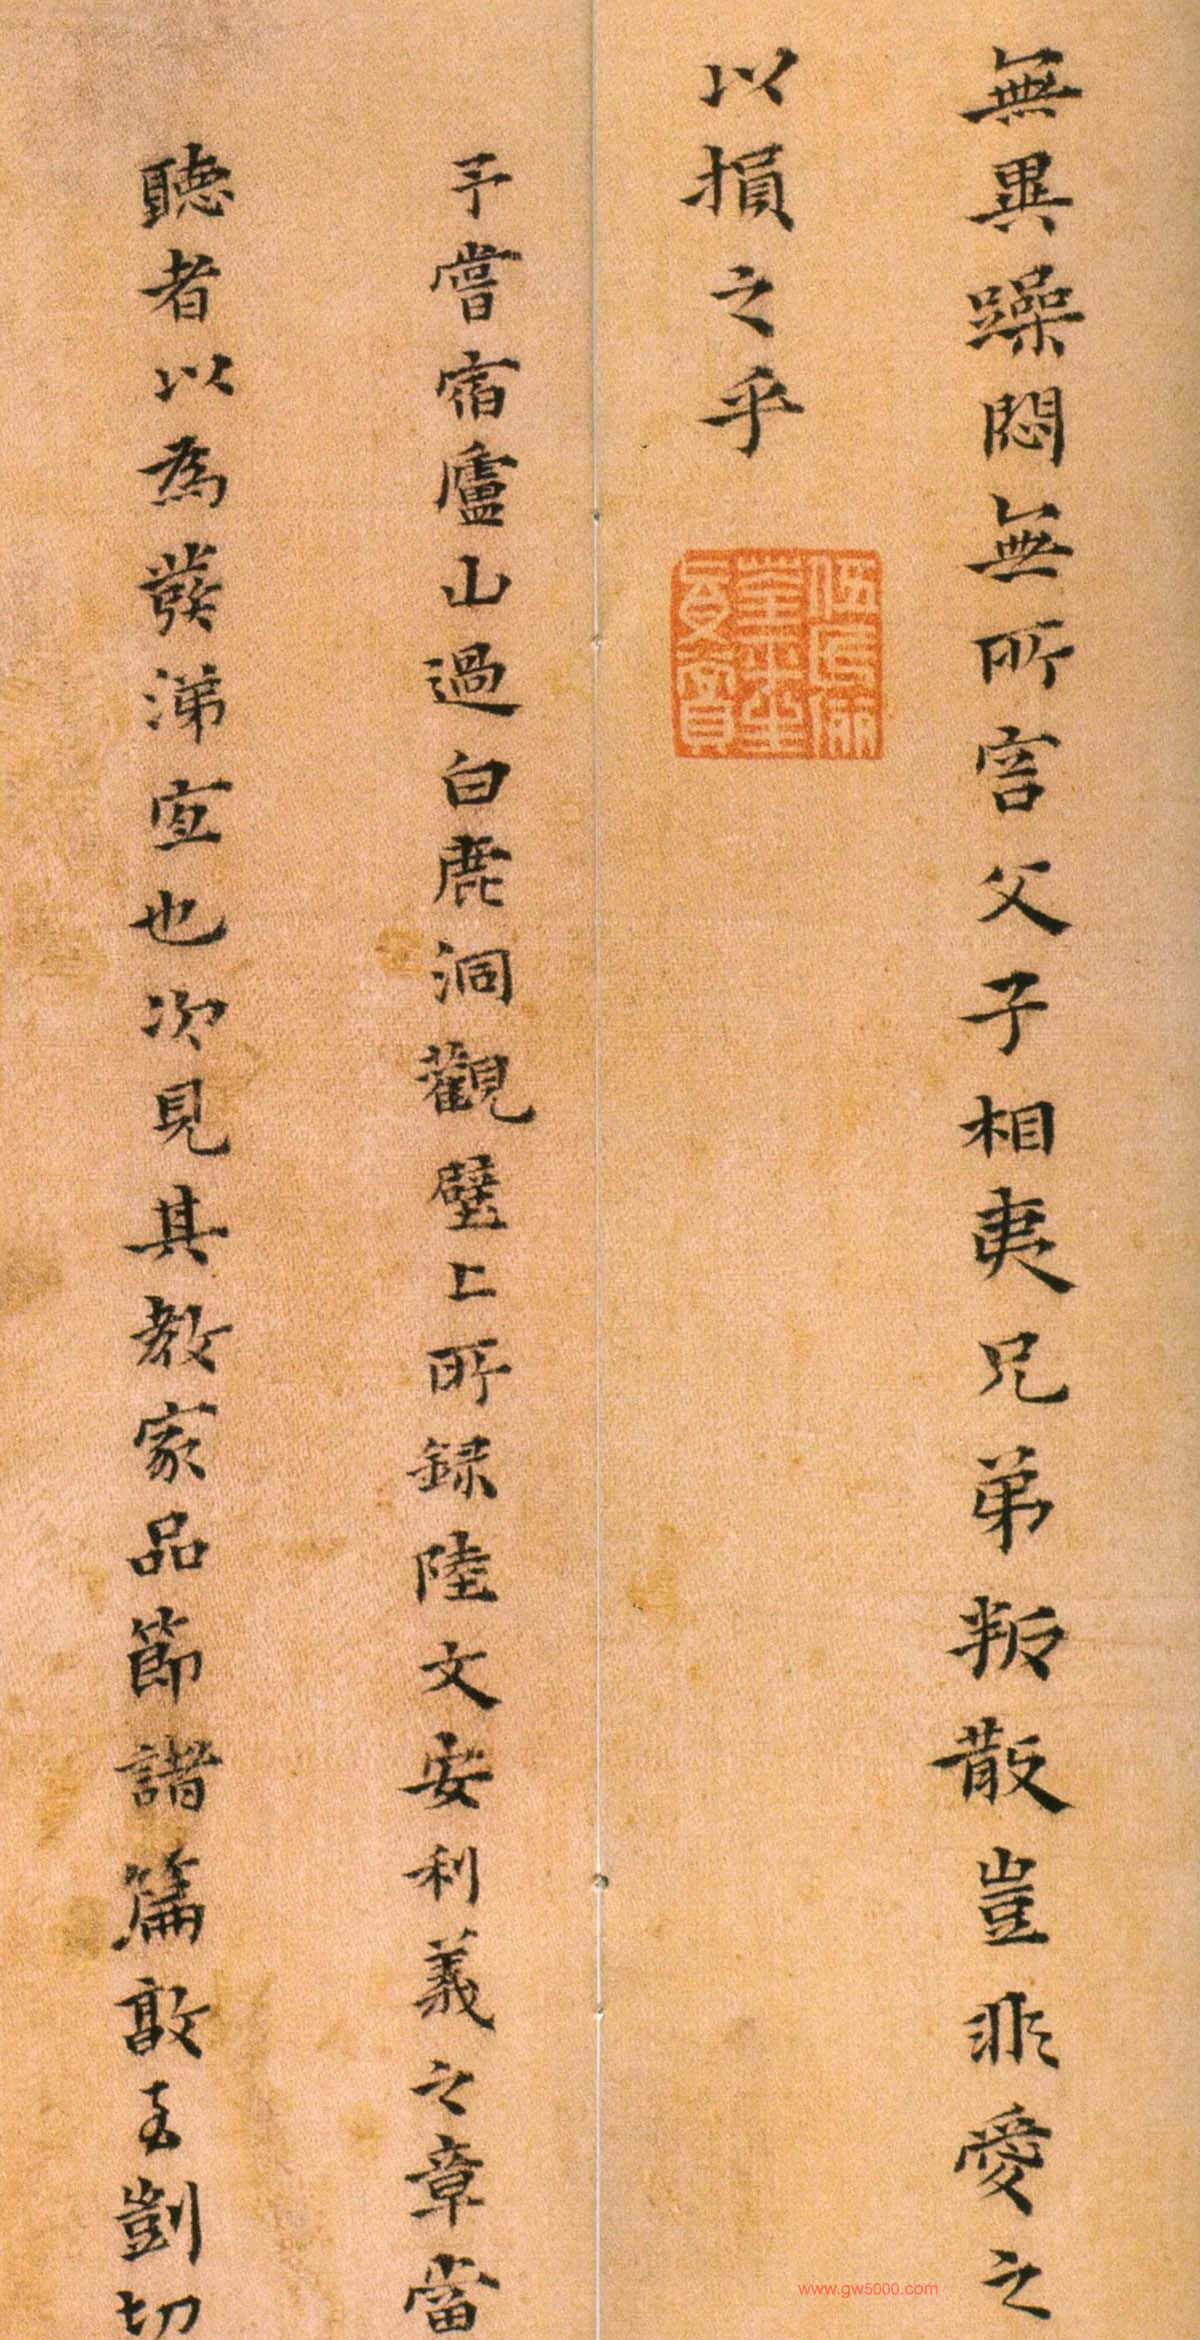 無異躁悶無所言父子相夷兄弟叛散豈非愛之
以損之乎
予嘗宿廬山過白鹿洞觀壁上所録陸文安利義之章當
聽者以為發涕宜也次見其教家品節諸篇敦玄剴切
www.gw5000.com